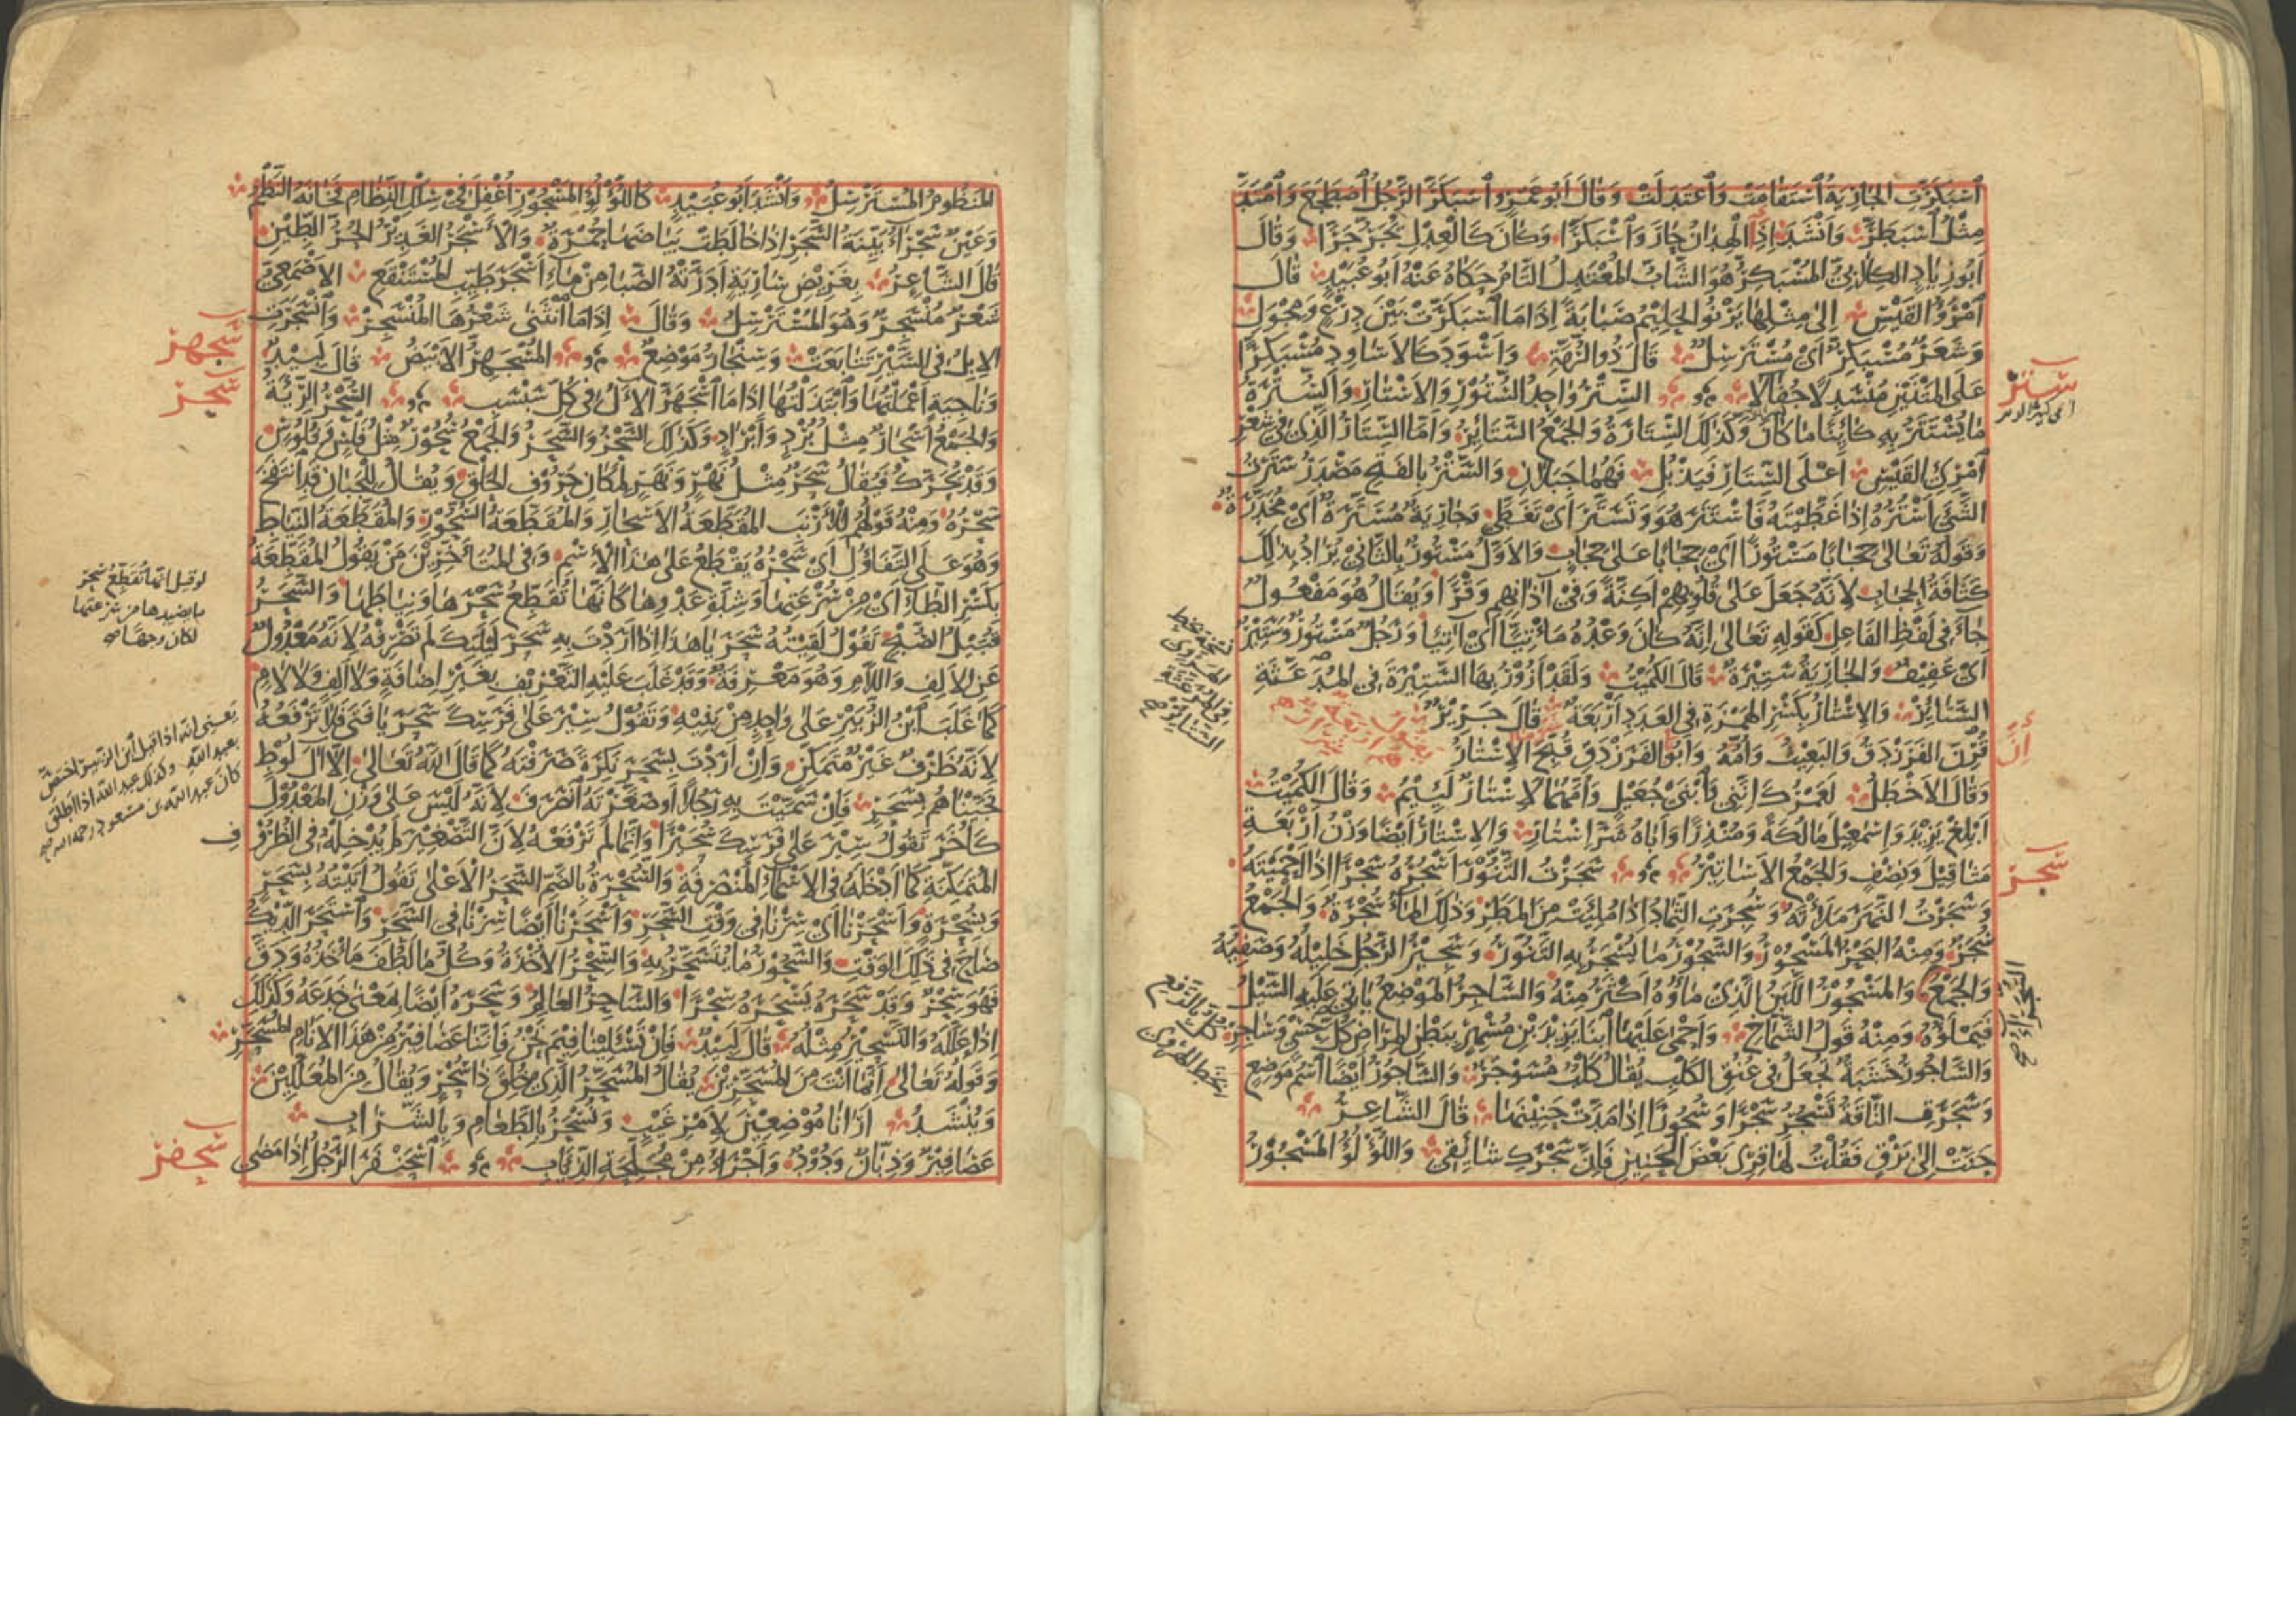 اسْبَكَرَّتِ الجَارِيَةُ اسْتَقَامَتْ وَاعْتَدَلَتْ وَقَالَ أَبُو عَمْرٍو اسْبَكَرَّ الرَّجُلُ اضْطَجَعَ وَامْتَدَّ
مِثْلُ اسْبَطَرَّ وَأَنْشَدَ إِذَا الْهِدَانُ حَارَ وَاسْبَكَرَّا وَكَانَ كَالْعِدْلِ يُجَرُّ جَرَّا وَقَالَ
أَبُو زِيَادٍ الكِلَابِيُّ المُسْبَكِرُّ هُوَ الشَّابُّ المُعْتَدِلُ التَّامُّ حَكَاهُ عَنْهُ أَبُو عُبَيْدٍ قَالَ
امْرُؤُ القَيْسِ إِلَى مِثْلِهَا يَرْنُو الحَلِيمُ صَبَابَةً إِذَا مَا اسْبَكَرَّتْ بَيْنَ دِرْعٍ وَمِجْوَلِ
وَشَعَرٌ مُسْبَكِرٌّ أَيْ مُسْتَرْسِلٌ قَالَ ذُو الرُّمَّةِ وَأَسْوَدَ كَالأَسَاوِدِ مُسْبَكِرًّا
عَلَى المَتْنَيْنِ مُنْسَدِلًا جُفَالَا السِّتْرُ وَاحِدُ السُّتُورِ وَالأَسْتَارِ وَالسُّتْرَةُ
مَا يُسْتَتَرُ بِهِ كَائِنًا مَا كَانَ وَكَذَلِكَ السِّتَارَةُ وَالجَمْعُ السَّتَائِرُ وَأَمَّا السِّتَارُ الَّذِي فِي شِعْرِ
امْرِئِ القَيْسِ أَعْلَى السِّتَارِ فَيَذْبُلِ فَهُمَا جَبَلَانِ وَالسَّتْرُ بِالفَتْحِ مَصْدَرُ سَتَرْتُ
الشَّيْءَ أَسْتُرُهُ إِذَا غَطَّيْتَهُ فَاسْتَتَرَ هُوَ وَتَسَتَّرَ أَيْ تَغَطَّى وَجَارِيَةٌ مُسَتَّرَةٌ أَيْ مُخَدَّرَةٌ
وَقَوْلُهُ تَعَالَى حِجَابًا مَسْتُورًا أَيْ حِجَابًا عَلَى حِجَابٍ وَالأَوَّلُ مَسْتُورٌ بِالثَّانِي يُرَادُ بِذَلِكَ
كَثَافَةُ الحِجَابِ لِأَنَّهُ جَعَلَ عَلَى قُلُوبِهِمْ أَكِنَّةً وَفِي آذَانِهِمْ وَقْرًا وَيُقَالُ هُوَ مَفْعُولٌ
جَاءَ فِي لَفْظِ الفَاعِلِ كَقَوْلِهِ تَعَالَى إِنَّهُ كَانَ وَعْدُهُ مَأْتِيًّا أَيْ آتِيًا وَرَجُلٌ مَسْتُورٌ وَسَتِيرٌ
أَيْ عَفِيفٌ وَالجَارِيَةُ سَتِيرَةٌ قَالَ الكُمَيْتُ وَلَقَدْ أَزُورُ بِهَا السَّتِيرَةَ فِي المُرَعَّثَةِ
السَّتَائِرِ وَالإِسْتَارُ بِكَسْرِ الهَمْزَةِ فِي العَدَدِ أَرْبَعَةٌ قَالَ جَرِيرٌ
قُرِنَ الفَرَزْدَقُ وَالبَعِيثُ وَأُمُّهُ وَأَبُو الفَرَزْدَقِ قُبِّحَ الإِسْتَارُ
وَقَالَ الأَخْطَلُ لَعَمْرُكَ إِنَّنِي وَابْنَيْ جُعَيْلٍ وَأُمَّهُمَا لَإِسْتَارٌ لَئِيمُ وَقَالَ الكُمَيْتُ
أَبْلِغْ يَزِيدَ وَإِسْمَعِيلَ مَالُكَةً وَمُنْذِرًا وَأَبَاهُ شَرَّ إِسْتَارِ وَالإِسْتَارُ أَيْضًا وَزْنُ أَرْبَعَةِ
مَثَاقِيلَ وَنِصْفٍ وَالجَمْعُ الأَسَاتِيرُ سَجَرْتُ التَّنُّورَ أَسْجُرُهُ سَجْرًا إِذَا أَحْمَيْتَهُ
وَسَجَرْتُ النَّهَرَ مَلَأْتُهُ وَسُجِرَتِ الثِّمَادُ إِذَا مُلِئَتْ مِنَ المَطَرِ وَذَلِكَ المَاءُ سُجْرَةٌ وَالجَمْعُ
سُجَرٌ وَمِنْهُ البَحْرُ المَسْجُورُ وَالسَّجُورُ مَا يُسْجَرُ بِهِ التَّنُّورُ وَسَجِيرُ الرَّجُلِ خَلِيلُهُ وَصَفِيُّهُ
وَالجَمْعُ وَالمَسْجُورُ اللَّبَنُ الَّذِي مَاؤُهُ أَكْثَرُ مِنْهُ وَالسَّاجِرُ المَوْضِعُ يَأْتِي عَلَيْهِ السَّيْلُ
فَيَمْلَؤُهُ وَمِنْهُ قَوْلُ الشَّمَّاخِ وَأَحْمَى عَلَيْهَا ابْنَا يَزِيدَ بْنِ مُسْهِرٍ بِبَطْنِ المَرَاضِ كُلَّ حِسْيٍ وَسَاجِرِ
وَالسَّاجُورُ خَشَبَةٌ تُجْعَلُ فِي عُنُقِ الكَلْبِ يُقَالُ كَلْبٌ مُسَوْجَرٌ وَالسَّاجُورُ أَيْضًا اسْمُ مَوْضِعٍ
وَسَجَرَتِ النَّاقَةُ تَسْجُرُ سَجْرًا وَسُجُورًا إِذَا مَدَّتْ حَنِينَهَا قَالَ الشَّاعِرُ
حَنَّتْ إِلَى بَرْقٍ فَقُلْتُ لَهَا قِرِي بَعْضَ الحَنِينِ فَإِنَّ سَجْرَكِ شَائِقِي وَاللُّؤْلُؤُ المَسْجُورُ
ستر
سجر
المَنْظُومُ المُسْتَرْسِلُ وَأَنْشَدَ أَبُو عُبَيْدٍ كَاللُّؤْلُؤِ المَسْجُورِ أُغْفِلَ فِي سِلْكِ النِّظَامِ فَخَانَهُ النَّظْمُ
وَعَيْنٌ سَجْرَاءُ بَيِّنَةُ السَّجَرِ إِذَا خَالَطَتْ بَيَاضَهَا حُمْرَةٌ وَالأَسْجَرُ الغَدِيرُ الحُرُّ الطِّينِ
قَالَ الشَّاعِرُ بِغَرِيضِ سَارِيَةٍ أَدَرَّتْهُ الصَّبَا مِنْ مَاءِ أَسْجَرَ طَيِّبِ المُسْتَنْقَعِ الأَصْمَعِيُّ
شَعْرٌ مُنْسَجِرٌ وَهُوَ المُسْتَرْسِلُ وَقَالَ إِذَا مَا انْثَنَى شَعْرُهَا المُنْسَجِرْ وَانْسَجَرَتِ
الإِبِلُ فِي السَّيْرِ تَتَابَعَتْ وَسِنْجَارُ مَوْضِعٌ المُسْجَهِرُّ الأَبْيَضُ قَالَ لَبِيدٌ
وَنَاجِيَةٍ أَعْمَلْتُهَا وَابْتَذَلْتُهَا إِذَا مَا اسْجَهَرَّ الآلُ فِي كُلِّ سَبْسَبِ السَّحْرُ الرِّئَةُ
وَالجَمْعُ أَسْحَارٌ مِثْلُ بُرْدٍ وَأَبْرَادٍ وَكَذَلِكَ السَّحْرُ وَالسَّحَرُ وَالجَمْعُ سُحُورٌ مِثْلُ فَلْسٍ وَفُلُوسٍ
وَقَدْ يُحَرَّكُ فَيُقَالُ سَحَرٌ مِثْلُ نَهْرٍ وَنَهَرٍ لِمَكَانِ حُرُوفِ الحَلْقِ وَيُقَالُ لِلْجَبَانِ قَدِ انْتَفَخَ
سَحْرُهُ وَمِنْهُ قَوْلُهُمْ لِلْأَرْنَبِ المُقَطَّعَةُ الأَسْحَارِ وَالمُقَطَّعَةُ السُّحُورِ وَالمُقَطَّعَةُ النِّيَاطِ
وَهُوَ عَلَى التَّفَاؤُلِ أَيْ سَحْرُهُ يُقْطَعُ عَلَى هَذَا الاسْمِ وَفِي المُتَأَخِّرِينَ مَنْ يَقُولُ المُقَطِّعَةُ
بِكَسْرِ الطَّاءِ أَيْ مِنْ سُرْعَتِهَا وَشِدَّةِ عَدْوِهَا كَأَنَّهَا تُقَطِّعُ سَحْرَهَا وَنِيَاطَهَا وَالسَّحَرُ
قُبَيْلَ الصُّبْحِ تَقُولُ لَقِيتُهُ سَحَرَ يَا هَذَا إِذَا أَرَدْتَ بِهِ سَحَرَ لَيْلَتِكَ لَمْ تَصْرِفْهُ لِأَنَّهُ مَعْدُولٌ
عَنِ الأَلِفِ وَاللَّامِ وَهُوَ مَعْرِفَةٌ وَقَدْ غَلَبَ عَلَيْهِ التَّعْرِيفُ بِغَيْرِ إِضَافَةٍ وَلَا أَلِفٍ وَلَا لَامٍ
كَمَا غَلَبَ ابْنُ الزُّبَيْرِ عَلَى وَاحِدٍ مِنْ بَنِيهِ وَتَقُولُ سِيرَ عَلَى فَرَسِكَ سَحَرَ يَا فَتَى فَلَا تَرْفَعْهُ
لِأَنَّهُ ظَرْفٌ غَيْرُ مُتَمَكِّنٍ وَإِنْ أَرَدْتَ بِسَحَرٍ نَكِرَةً صَرَفْتَهُ كَمَا قَالَ اللهُ تَعَالَى إِلَّا آلَ لُوطٍ
نَجَّيْنَاهُمْ بِسَحَرٍ فَإِنْ سَمَّيْتَ بِهِ رَجُلًا أَوْ صَغَّرْتَهُ انْصَرَفَ لِأَنَّهُ لَيْسَ عَلَى وَزْنِ المَعْدُولِ
كَأُخَرَ تَقُولُ سِيرَ عَلَى فَرَسِكَ سُحَيْرًا وَإِنَّمَا لَمْ تَرْفَعْهُ لِأَنَّ التَّصْغِيرَ لَمْ يُدْخِلْهُ فِي الظُّرُوفِ
المُتَمَكِّنَةِ كَمَا أَدْخَلَهُ فِي الأَسْمَاءِ المُنْصَرِفَةِ وَالسُّحْرَةُ بِالضَّمِّ السَّحَرُ الأَعْلَى تَقُولُ أَتَيْتُهُ بِسَحَرٍ
وَبِسُحْرَةٍ وَأَسْحَرْنَا أَيْ سِرْنَا فِي وَقْتِ السَّحَرِ وَأَسْحَرْنَا أَيْضًا صِرْنَا فِي السَّحَرِ وَاسْتَحَرَ الدِّيكُ
صَاحَ فِي ذَلِكَ الوَقْتِ وَالسَّحُورُ مَا يُتَسَحَّرُ بِهِ وَالسِّحْرُ الأُخْذَةُ وَكُلُّ مَا لَطُفَ مَأْخَذُهُ وَدَقَّ
فَهُوَ سِحْرٌ وَقَدْ سَحَرَهُ يَسْحَرُهُ سِحْرًا وَالسَّاحِرُ العَالِمُ وَسَحَرَهُ أَيْضًا بِمَعْنَى خَدَعَهُ وَكَذَلِكَ
إِذَا عَلَّلَهُ وَالتَّسْحِيرُ مِثْلُهُ قَالَ لَبِيدٌ فَإِنْ تَسْأَلِينَا فِيمَ نَحْنُ فَإِنَّنَا عَصَافِيرُ مِنْ هَذَا الأَنَامِ المُسَحَّرِ
وَقَوْلُهُ تَعَالَى إِنَّمَا أَنْتَ مِنَ المُسَحَّرِينَ يُقَالُ المُسَحَّرُ الَّذِي خُلِقَ ذَا سَحْرٍ وَيُقَالُ مِنَ المُعَلَّلِينَ
وَيُنْشَدُ أَرَانَا مُوضِعِينَ لِأَمْرِ غَيْبٍ وَنُسْحَرُ بِالطَّعَامِ وَبِالشَّرَابِ
عَصَافِيرٌ وَذِبَّانٌ وَدُودٌ وَأَجْرَأُ مِنْ مُجَلِّحَةِ الذِّئَابِ اسْحَنْفَرَ الرَّجُلُ إِذَا مَضَى
سجهر
سحر
لو قيل انها تقطع سحر
ما يصيدها من سرعتها
لكان وجها
يعني انه اذا قيل ابن الزبير اختص
بعبد الله وكذلك عبد الله اذا اطلق
كان عبد الله بن مسعود رحمه الله
سحفر